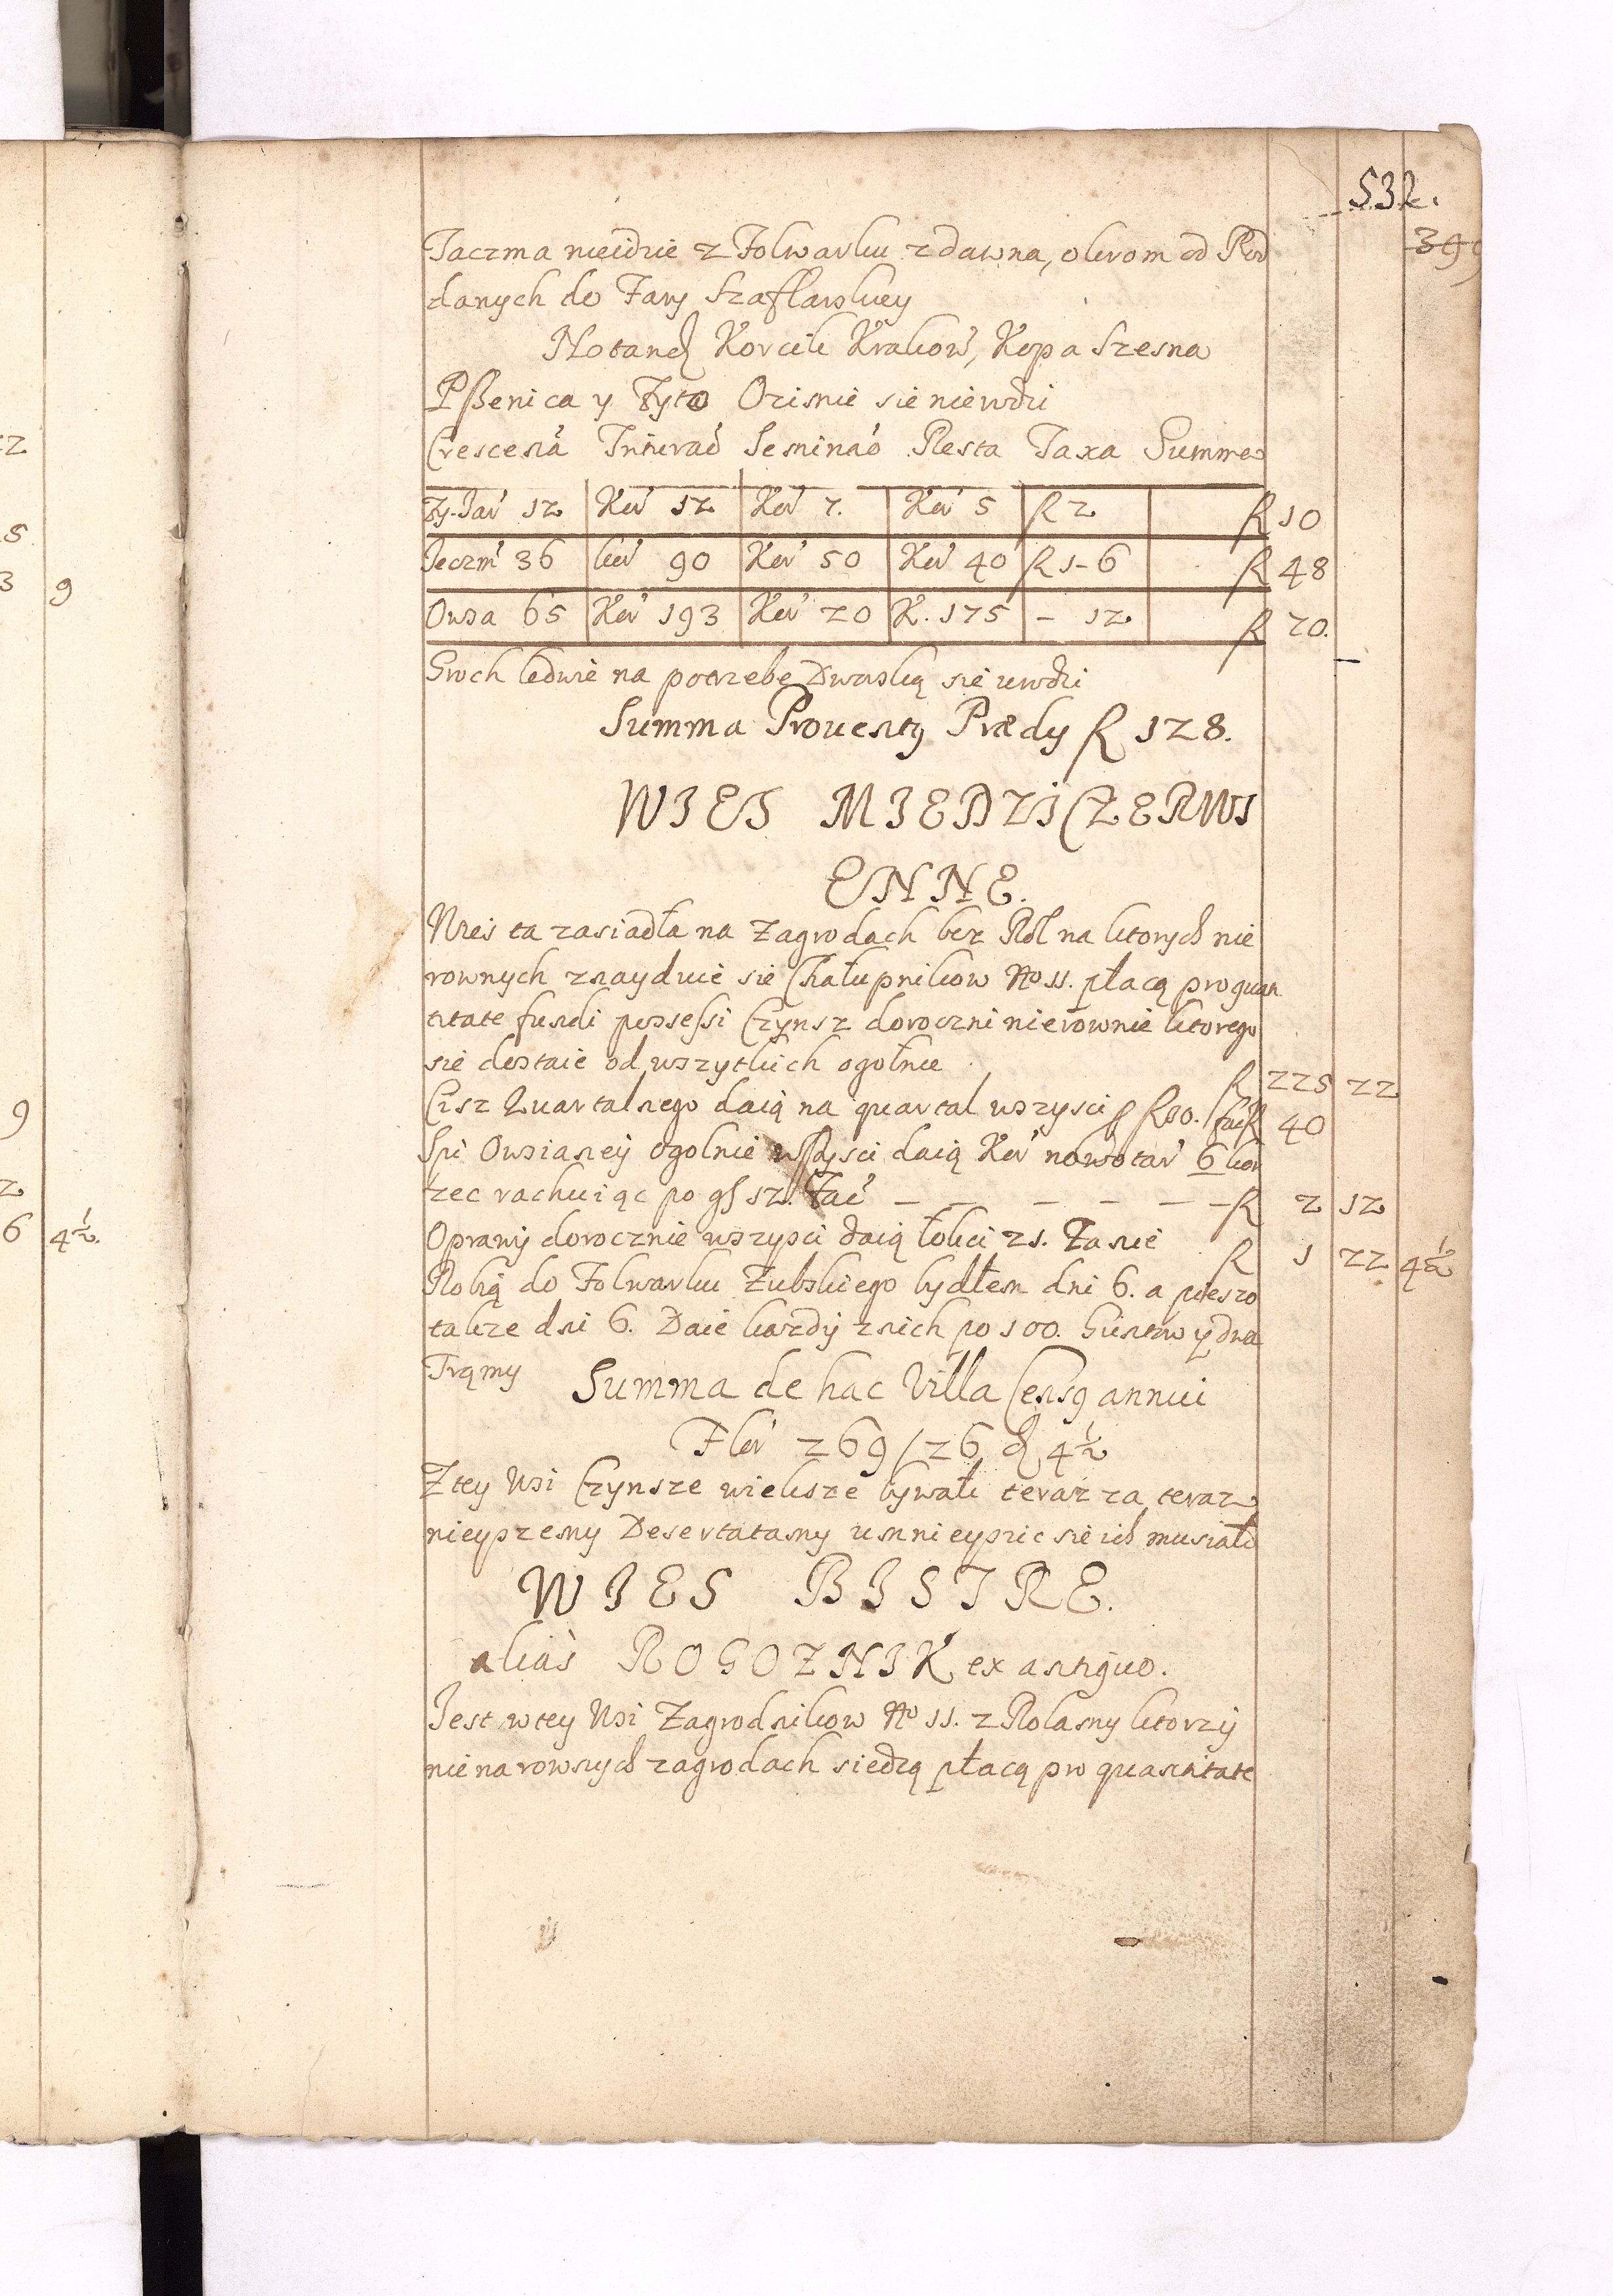 532.
399
Taczma nieidzie z Folwarku zdawna, okrom od Pod
danych do Fary Szaflarskiey
Notand Korcik Krakow, Kopa Szesna
Pszenica y Zyto Ozimie sie nierodzi
Crescenä Triturao Seminao Resta Taxa Summa
Zy. Jar 12 Kor 12 Kor 7. Kor 5 fl 2 fl 10
Jeczm 36 kor 90 Kor 50 Kor 40 fl 1-6 fl 48
Owsa 65 Kor 193 Kor 20 K. 175 - 12 fl 70.
Groch ledwie na potrzebe Dworską sie urodzi
Summa Proventq Prædy fl 128.
WIES MIEDZICZERWI
ENNE.
Wies ta zasiadła na Zagrodach bez Rol na ktorych nie
rownych znayduie sie Chałupnikow No 11. płacą pro quan
titate fundi possessi Czynsz doroczni nierownie ktorego
sie dostaie od wszytkich ogołnie fl 225 22
Czsz Quartalnego daią na quartal wszysci p fl 10. facit fl 40
Spi Owsianey ogolnie wszysci daią Kor nowotar 6 kor
zec rachuiąc po gr 12. Fac — — — — — — fl 2 12
Oprawy dorocznie wszysci daią łokci 21. Za nie fl 1 22 4½
Robią do Folwarku Zubskiego bydłem dni 6. a pieszo
takze dni 6. Daie kozdy znich po 100. Gontow y dwa
Tramy Summa de hac Villa Censq annui
Flor 269/26 d 4½
Ztey Wsi Czynsze wieksze bywałi teraz za teraz
nieyszemy Desertatamy umnieyszic sie ich musiało
WIES BISTRE.
alias ROGOZNIK ex antiquo.
Jest wtey Wsi Zagrodnikow No 11. z Rolamy ktorzy
nie na rownych zagrodach siedzą płacą pro quantitate